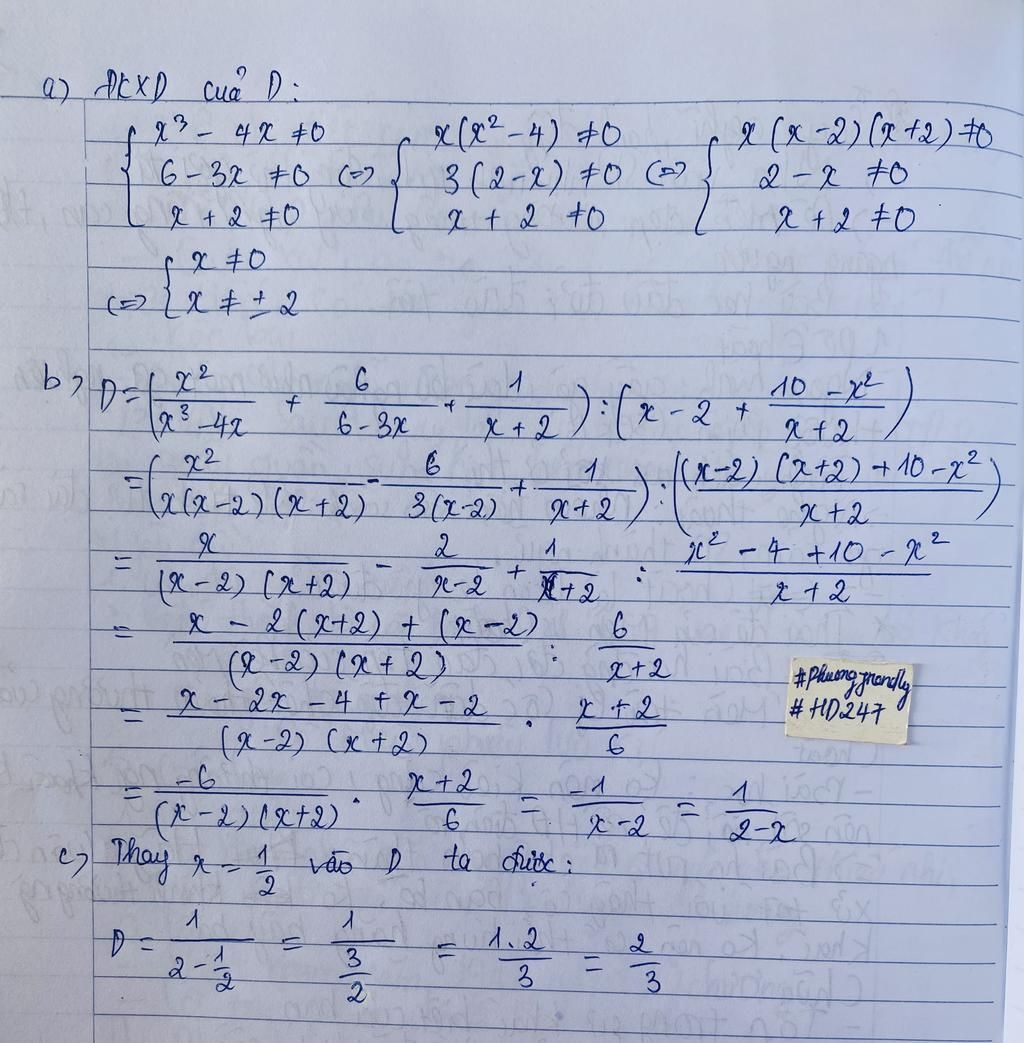 a) ĐKXD của D:
{ x³ - 4x ≠ 0 ; 6 - 3x ≠ 0 ; x + 2 ≠ 0 <=> { x(x² - 4) ≠ 0 ; 3(2 - x) ≠ 0 ; x + 2 ≠ 0 <=> { x(x - 2)(x + 2) ≠ 0 ; 2 - x ≠ 0 ; x + 2 ≠ 0
<=> { x ≠ 0 ; x ≠ ± 2
b) D = (x²/(x³ - 4x) + 6/(6 - 3x) + 1/(x + 2)) : (x - 2 + (10 - x²)/(x + 2))
= (x²/(x(x - 2)(x + 2)) - 6/(3(x - 2)) + 1/(x + 2)) : (((x - 2)(x + 2) + 10 - x²)/(x + 2))
= x/((x - 2)(x + 2)) - 2/(x - 2) + 1/(x + 2) : (x² - 4 + 10 - x²)/(x + 2)
= (x - 2(x + 2) + (x - 2))/((x - 2)(x + 2)) : 6/(x + 2)
= (x - 2x - 4 + x - 2)/((x - 2)(x + 2)) . (x + 2)/6
#Phuongjrandly
#HD247
= -6/((x - 2)(x + 2)) . (x + 2)/6 = -1/(x - 2) = 1/(2 - x)
c) Thay x = 1/2 vào D ta được:
D = 1/(2 - 1/2) = 1/(3/2) = 1.2/3 = 2/3